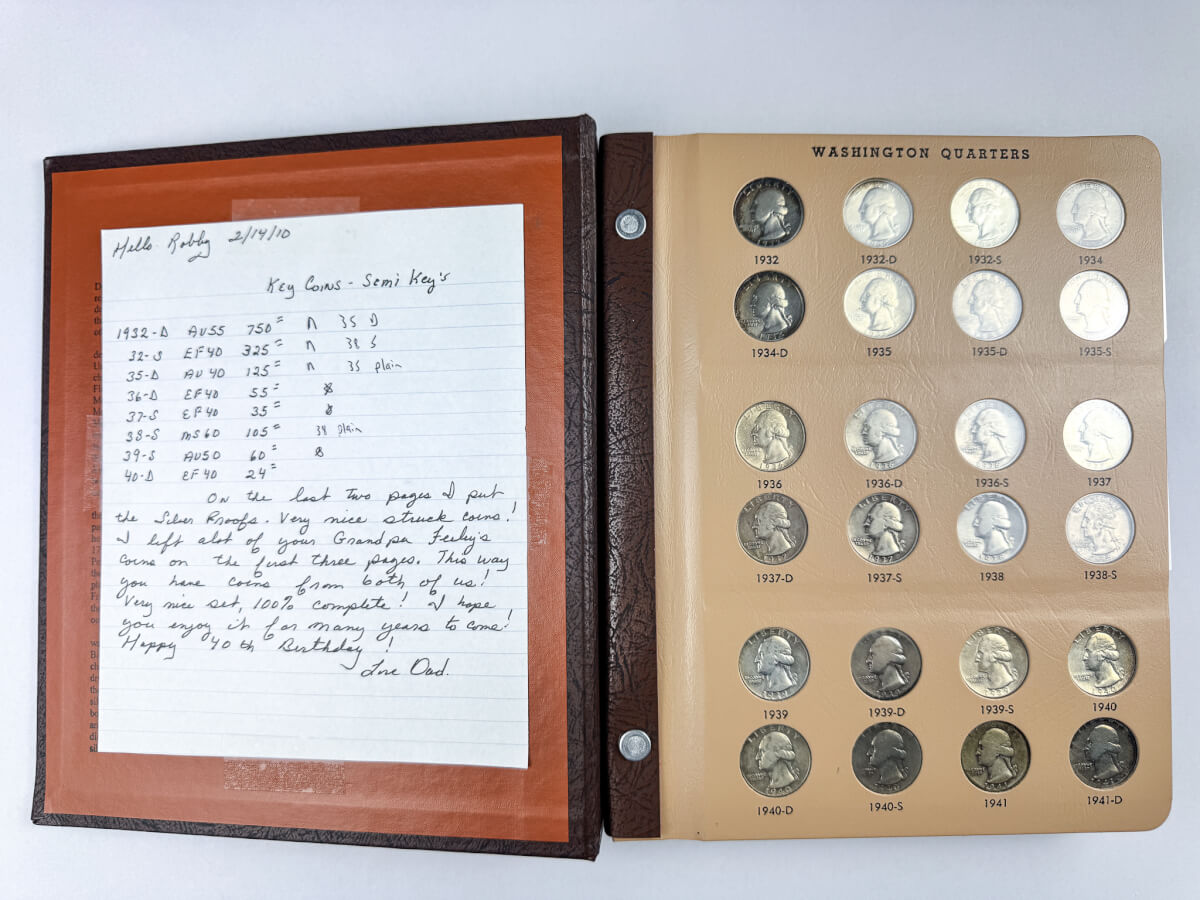 Hello Robby 2/14/10
Key Coins - Semi Key's
1932-D AU55 750= n 35 D
32-S EF40 325= n 38 S
35-D AU40 125= n 35 plain
36-D EF40 55=
37-S EF40 35=
38-S MS60 105= 38 plain
39-S AU50 60=
40-D EF40 24=
On the last two pages I put
the Silver Proofs. Very nice struck coins!
I left alot of your Grandpa Feeley's
coins on the first three pages. This way
you have coins from both of us!
Very nice set, 100% complete! I hope
you enjoy it for many years to come!
Happy 40th Birthday!
Love Dad.
WASHINGTON QUARTERS
1932 1932-D 1932-S 1934
1934-D 1935 1935-D 1935-S
1936 1936-D 1936-S 1937
1937-D 1937-S 1938 1938-S
1939 1939-D 1939-S 1940
1940-D 1940-S 1941 1941-D